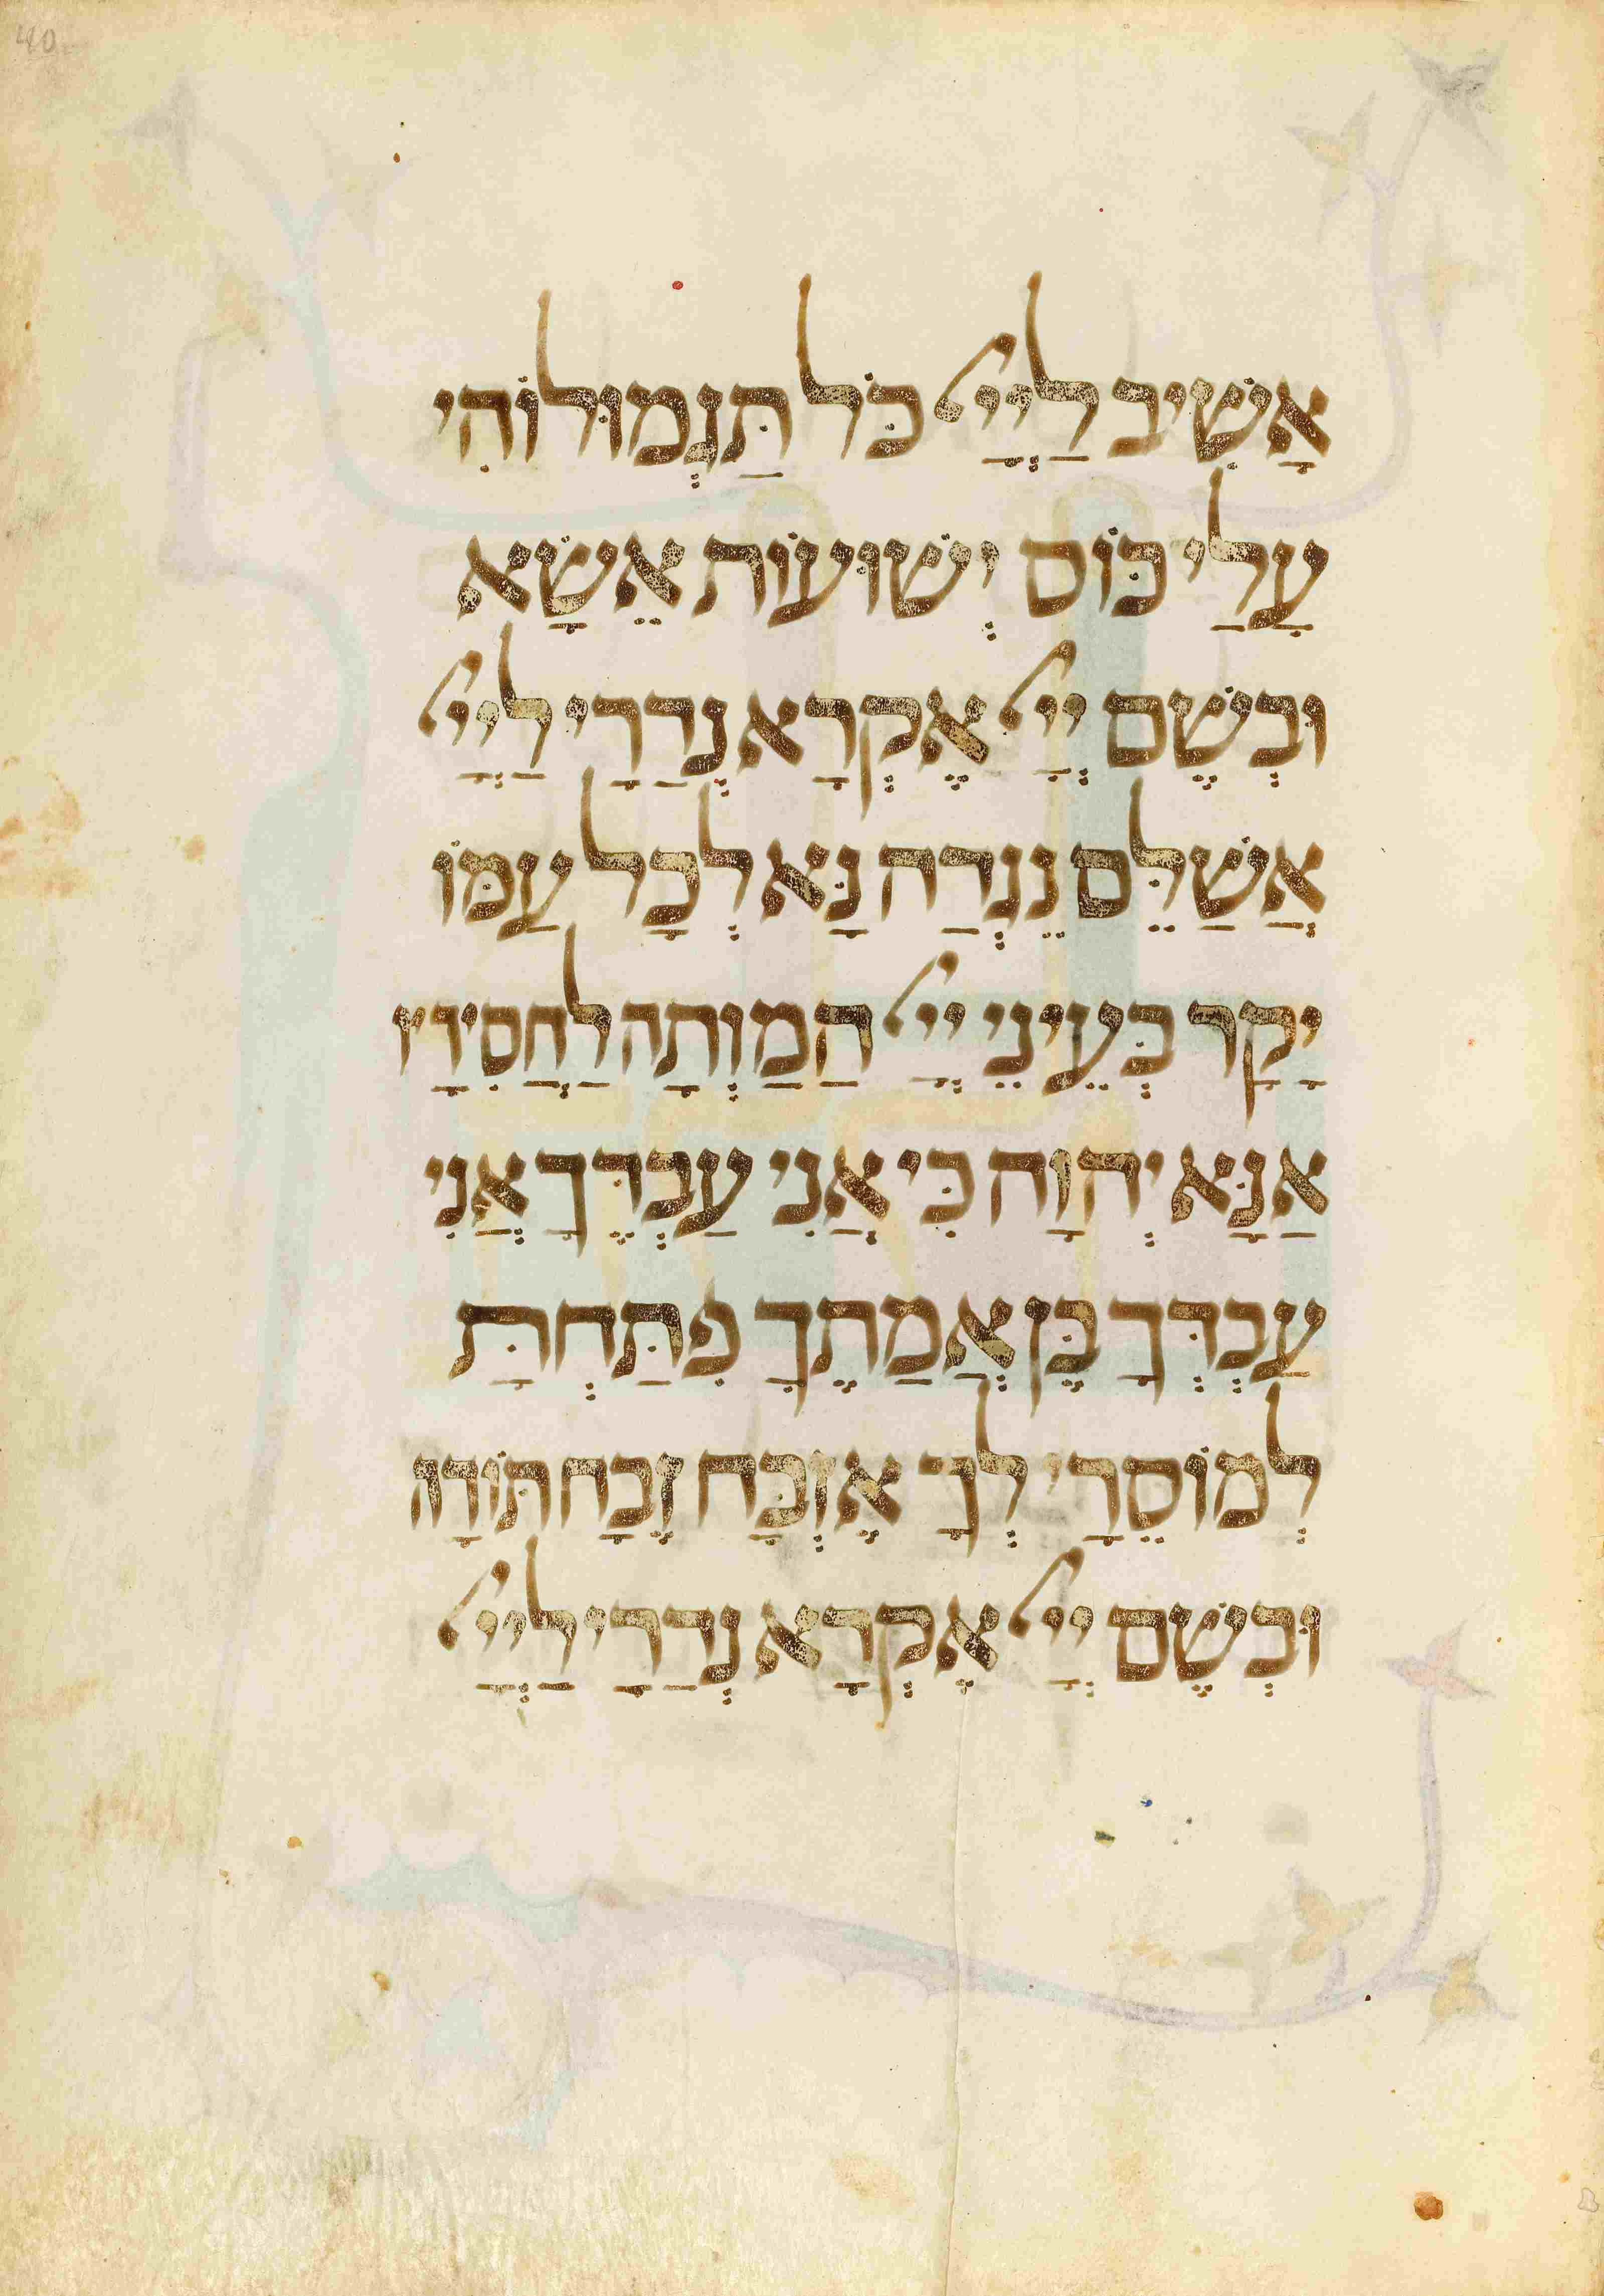 40
אָשִׁיב לַיְיָ כֹּל תַּגְמוּלוֹהִי
עַלַי כּוֹס יְשׁוּעוֹת אֵשָּׂא
וּבְשֶׁם יְיָ אֶקְרָא נְדַרָי לַיְיָ
אֲשַׁלֵּם נֵגְדַה נָּא לְכָל עַמּוֹ
יָקָר בְּעֵינֵי יְיָ הַמַוְתָה לַחֲסִידָיו
אַנָּא יְהוָה כִּי אֲנִי עַבְדֶּךָ אֲנִי
עַבְדְּךָ בֶּן אֲמַתֶךָ פִּתַּחְתָּ
לְמוֹסֵרָי לְךָ אֶזְבָּח זֶבָח תּוֹדָה
וּבְשֶׁם יְיָ אֶקְרָא נְדַרָי לַיְיָ